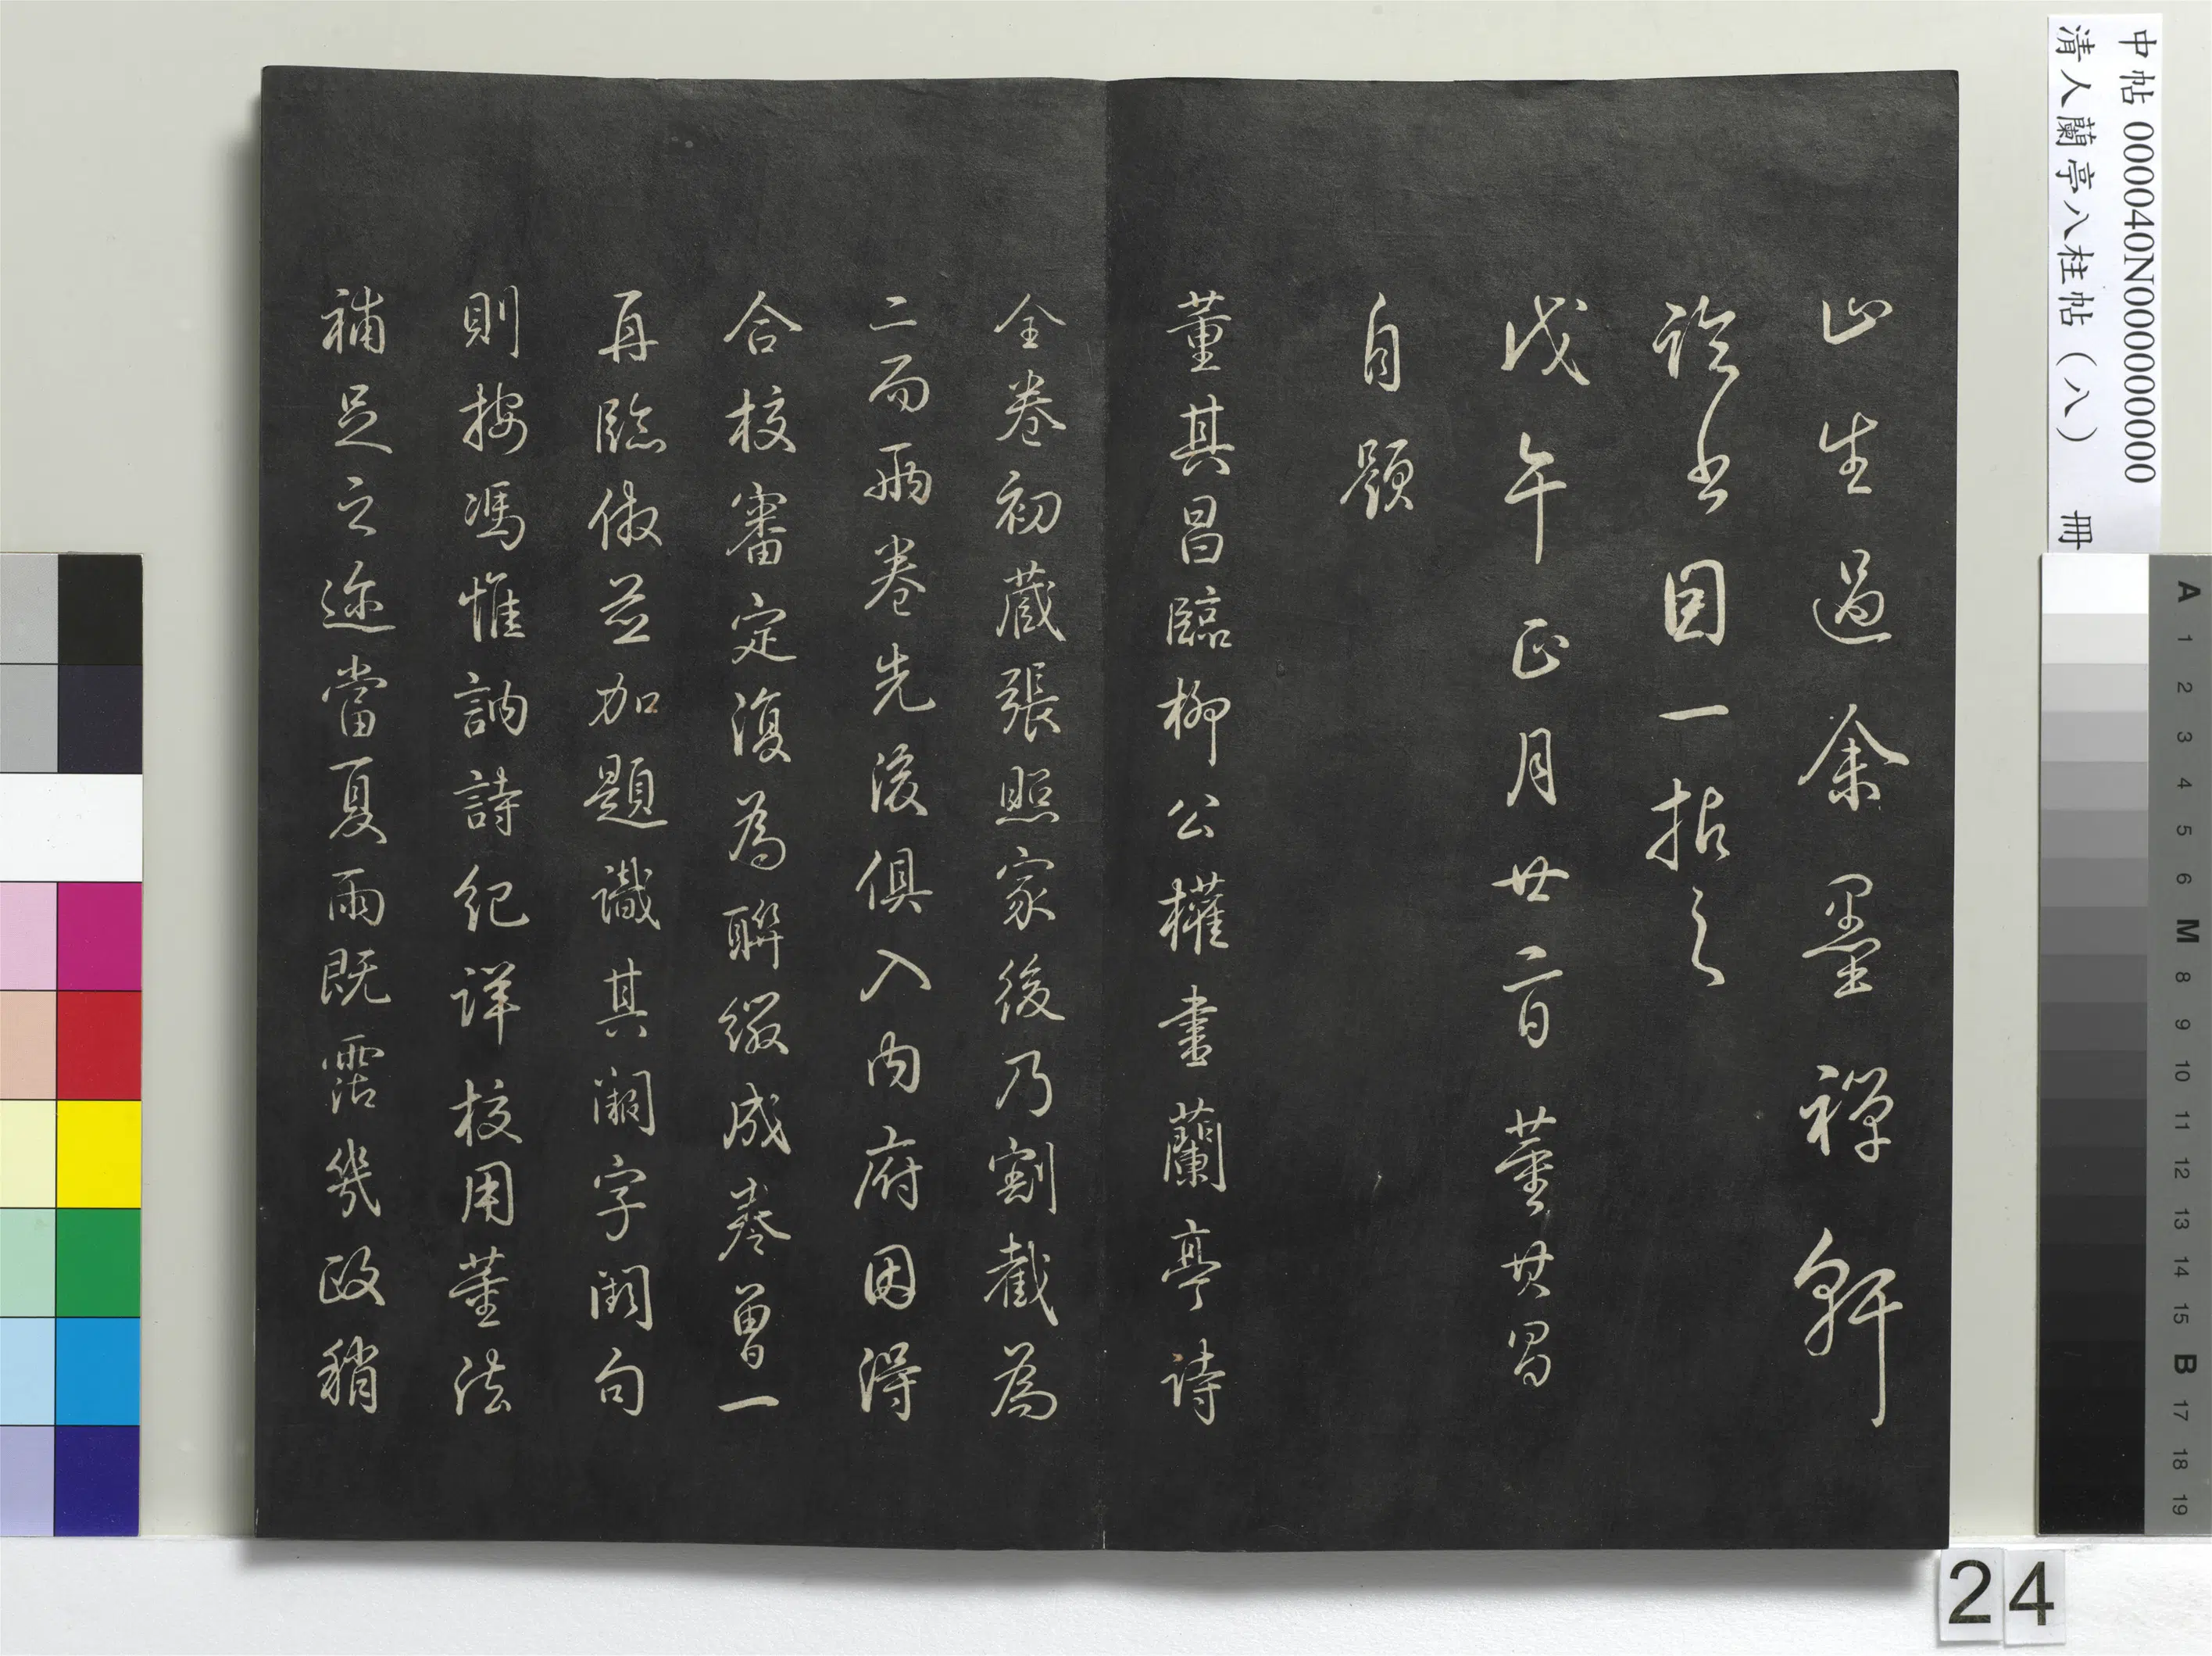 山生過余墨禪軒
論書因一拈之
戊午正月廿二日董其昌
自題
董其昌臨柳公權書蘭亭詩
全卷初藏張照家後乃割截為
二而兩卷先後俱入內府因得
合校審定復為聯綴成卷曾一
再臨倣並加題識其漏字闕句
則按馮惟訥詩紀詳校用董法
補足之迹當夏雨既霑幾政稍
中帖 000040N000000000
清人蘭亭八柱帖（八） 冊
A 1 2 3 4 5 6 M 8 9 10 11 12 13 14 15 B 17 18 19
24